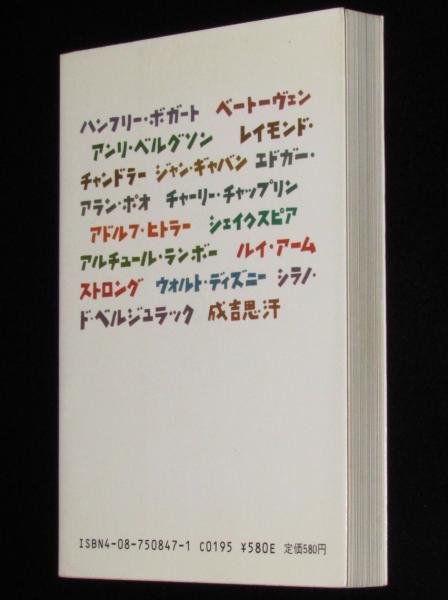 ハンフリー・ボガート ベートーヴェン
アンリ・ベルグソン レイモンド・
チャンドラー ジャン・ギャバン エドガー・
アラン・ポオ チャーリー・チャップリン
アドルフ・ヒトラー シェイクスピア
アルチュール・ランボー ルイ・アーム
ストロング ウォルト・ディズニー シラノ・
ド・ベルジュラック 成吉思・汗
ISBN4-08-750847-1 C0195 ¥580E 定価580円